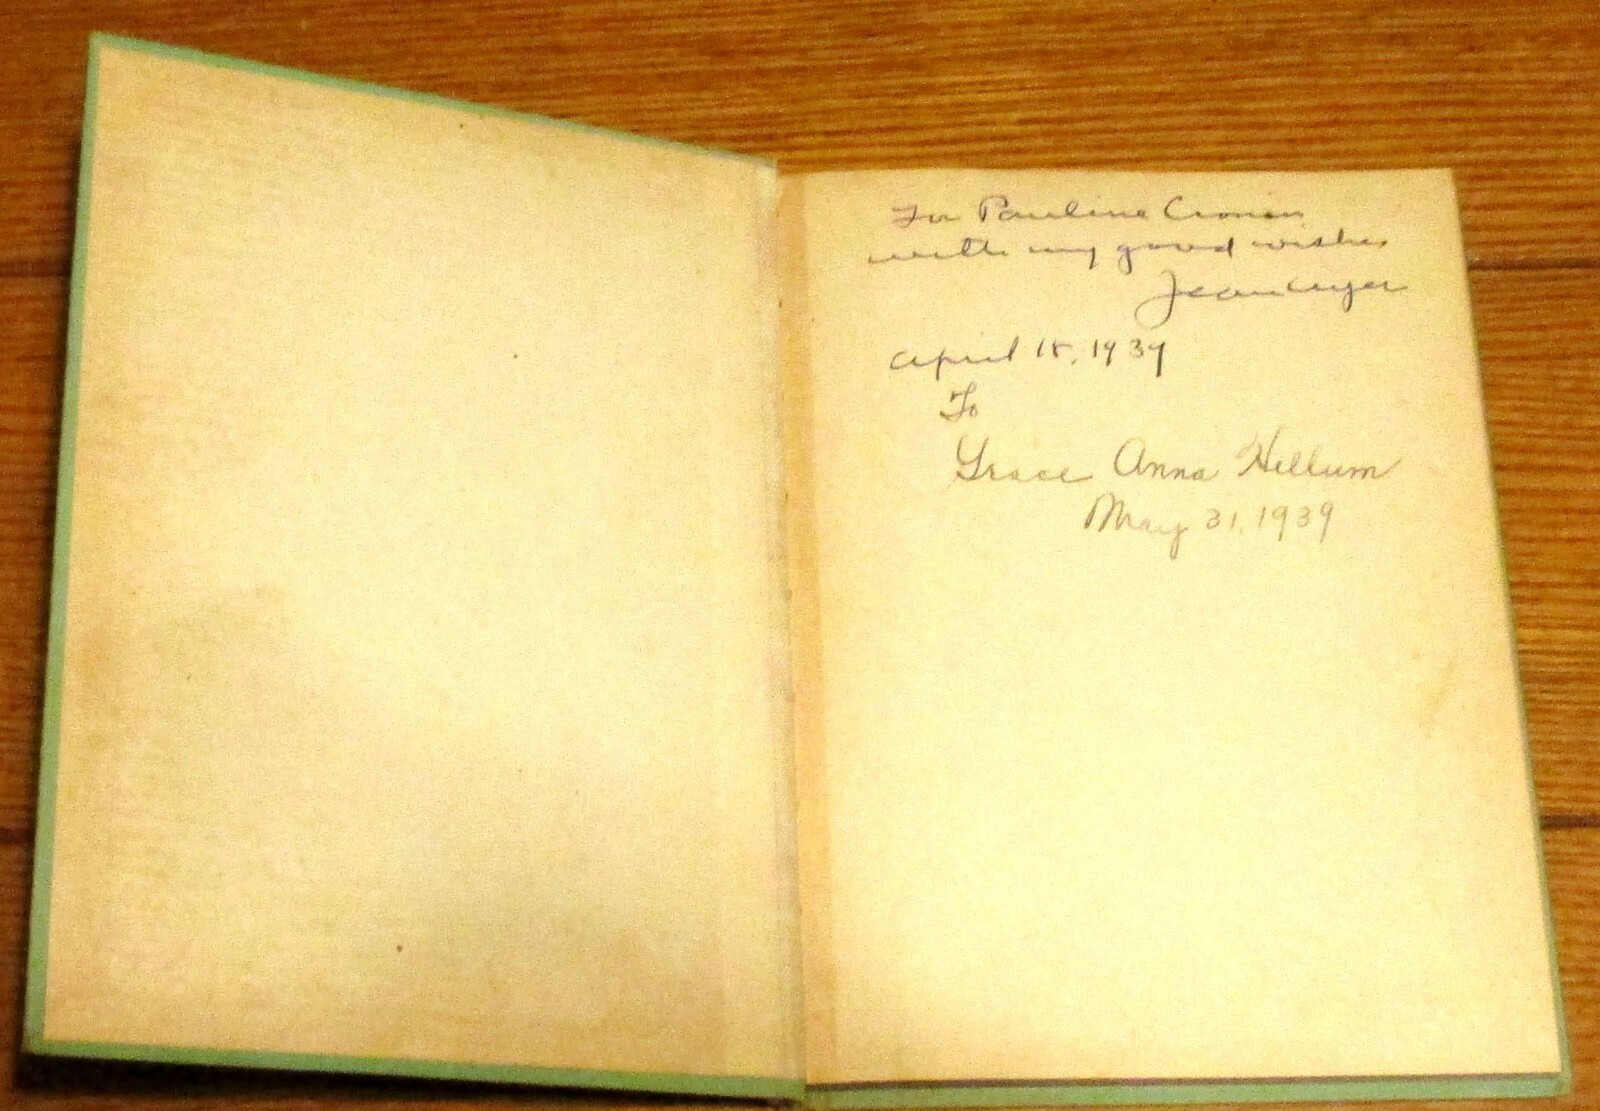 For Pauline Cronin
with my good wishes
Jean Ayer
April 18, 1939
To
Grace Anna Hellum
May 31, 1939